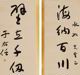 海納百川
壁立千仞
于右任